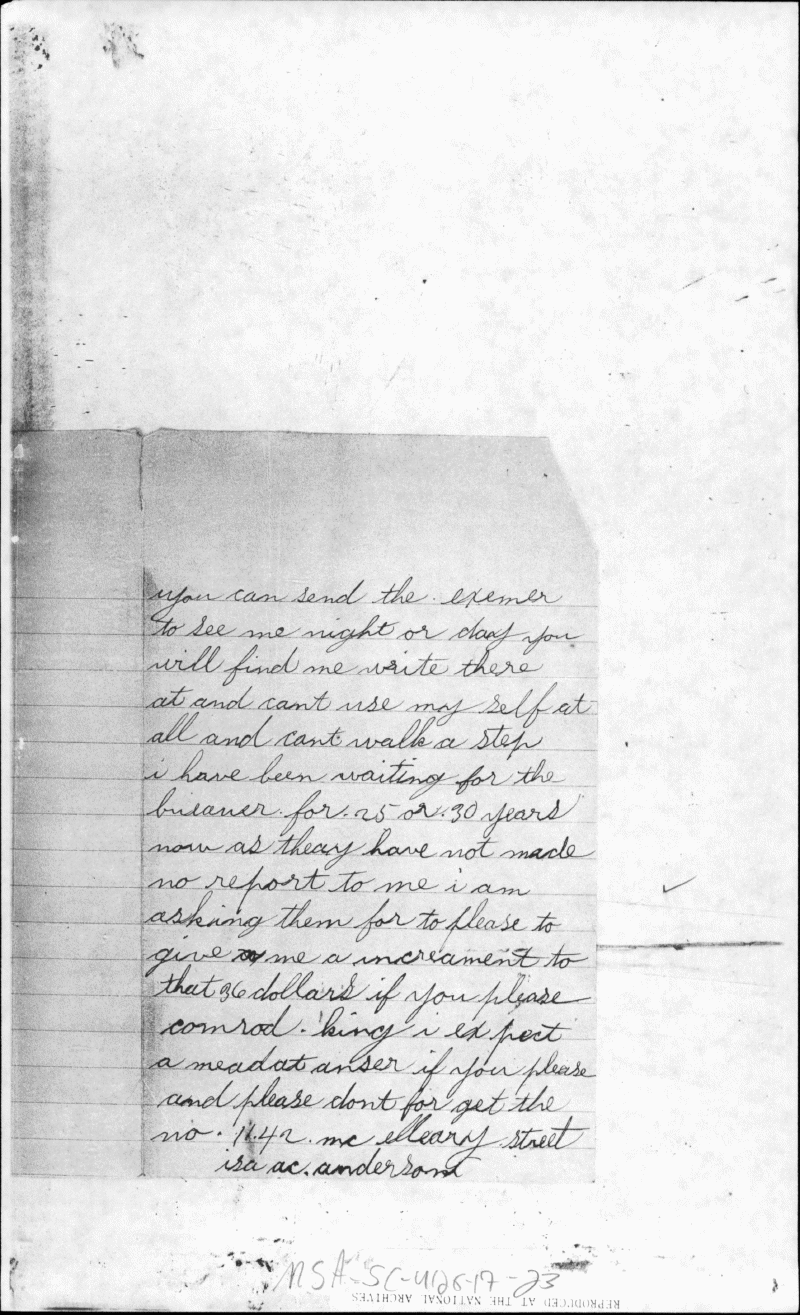 you can send the exemer
to see me night or day you
will find me write there
at and cant use my self at
all and cant walk a step
i have been waiting for the
bueauer. for. 25 or. 30 years
now as theay have not made
no report to me i am
asking them for to please to
give me a increament to
that 36 dollars if you please
comrod. king i ex pect
a meadat anser if you please
and please dont for get the
no. 11.42. mc elleary street
isa ac. anderson
NSA-SC-4126-17-23
REPRODUCED AT THE NATIONAL ARCHIVES